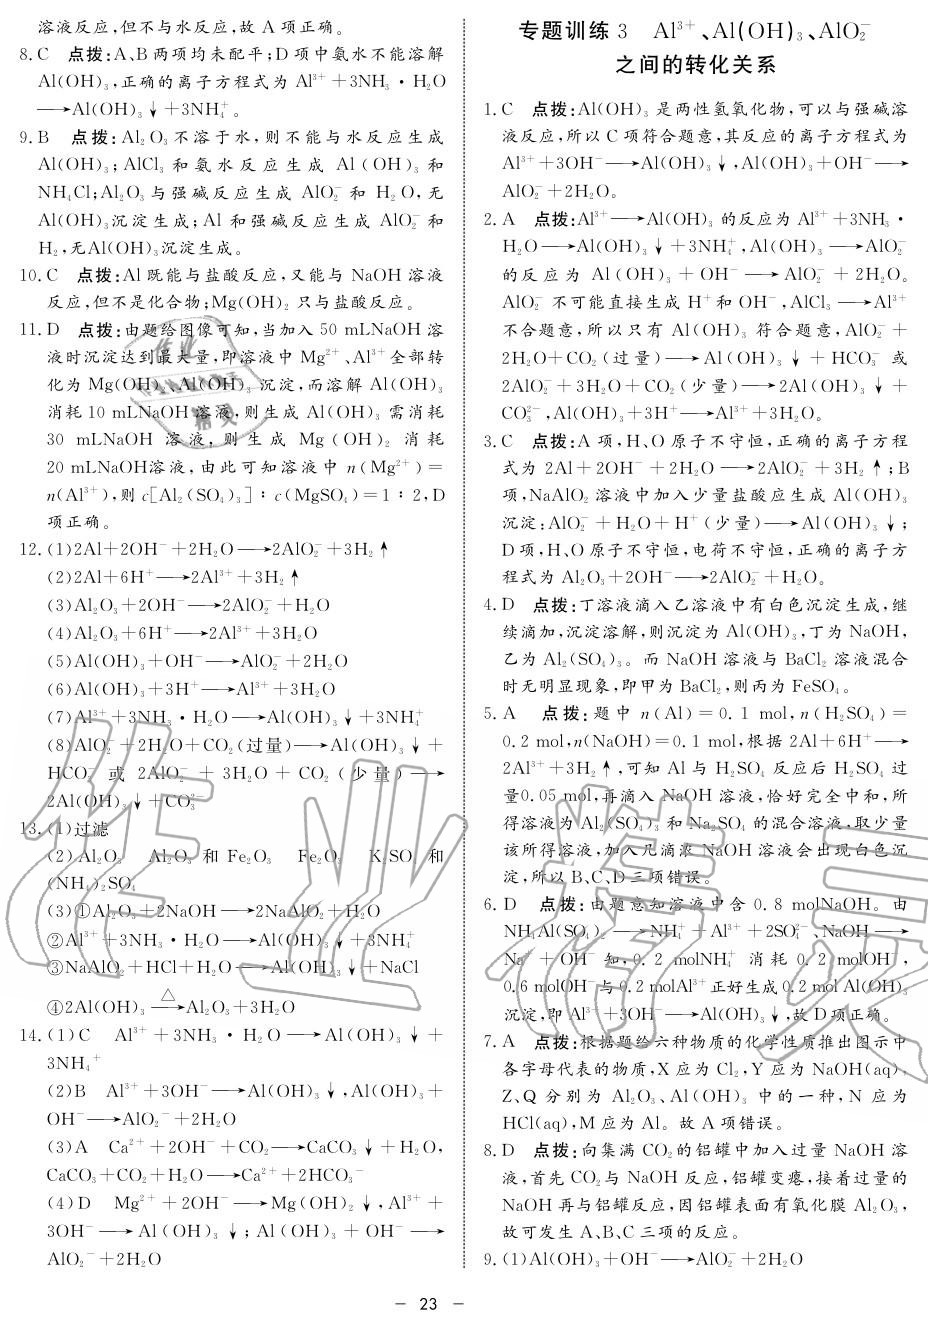 溶液反应,但不与水反应,故 A 项正确。
8. C　点拨:A、B 两项均未配平;D 项中氨水不能溶解
Al(OH)₃,正确的离子方程式为 Al³⁺+3NH₃·H₂O
⟶Al(OH)₃↓+3NH₄⁺。
9. B　点拨:Al₂O₃不溶于水,则不能与水反应生成
Al(OH)₃;AlCl₃ 和氨水反应生成 Al(OH)₃ 和
NH₄Cl;Al₂O₃与强碱反应生成 AlO₂⁻ 和 H₂O,无
Al(OH)₃沉淀生成;Al 和强碱反应生成 AlO₂⁻ 和
H₂,无Al(OH)₃沉淀生成。
10. C　点拨:Al 既能与盐酸反应,又能与 NaOH 溶液
反应,但不是化合物;Mg(OH)₂ 只与盐酸反应。
11. D　点拨:由题给图像可知,当加入 50 mLNaOH 溶
液时沉淀达到最大量,即溶液中 Mg²⁺、Al³⁺全部转
化为 Mg(OH)₂、Al(OH)₃ 沉淀,而溶解 Al(OH)₃
消耗 10 mLNaOH 溶液,则生成 Al(OH)₃ 需消耗
30 mLNaOH 溶液,则生成 Mg(OH)₂ 消耗
20 mLNaOH溶液,由此可知溶液中 n(Mg²⁺)=
n(Al³⁺),则 c[Al₂(SO₄)₃]∶c(MgSO₄)=1∶2,D
项正确。
12. (1)2Al+2OH⁻+2H₂O⟶2AlO₂⁻+3H₂↑
(2)2Al+6H⁺⟶2Al³⁺+3H₂↑
(3)Al₂O₃+2OH⁻⟶2AlO₂⁻+H₂O
(4)Al₂O₃+6H⁺⟶2Al³⁺+3H₂O
(5)Al(OH)₃+OH⁻⟶AlO₂⁻+2H₂O
(6)Al(OH)₃+3H⁺⟶Al³⁺+3H₂O
(7)Al³⁺+3NH₃·H₂O⟶Al(OH)₃↓+3NH₄⁺
(8)AlO₂⁻+2H₂O+CO₂(过量)⟶Al(OH)₃↓+
HCO₃⁻ 或 2AlO₂⁻+3H₂O+CO₂(少量)⟶
2Al(OH)₃↓+CO₃²⁻
13. (1)过滤
(2)Al₂O₃　Al₂O₃ 和 Fe₂O₃　Fe₂O₃　K₂SO₄ 和
(NH₄)₂SO₄
(3)①Al₂O₃+2NaOH⟶2NaAlO₂+H₂O
②Al³⁺+3NH₃·H₂O⟶Al(OH)₃↓+3NH₄⁺
③NaAlO₂+HCl+H₂O⟶Al(OH)₃↓+NaCl
④2Al(OH)₃ —△→Al₂O₃+3H₂O
14. (1)C　Al³⁺+3NH₃·H₂O⟶Al(OH)₃↓+
3NH₄⁺
(2)B　Al³⁺+3OH⁻⟶Al(OH)₃↓,Al(OH)₃+
OH⁻⟶AlO₂⁻+2H₂O
(3)A　Ca²⁺+2OH⁻+CO₂⟶CaCO₃↓+H₂O,
CaCO₃+CO₂+H₂O⟶Ca²⁺+2HCO₃⁻
(4)D　Mg²⁺+2OH⁻⟶Mg(OH)₂↓,Al³⁺+
3OH⁻⟶Al(OH)₃↓;Al(OH)₃+OH⁻⟶
AlO₂⁻+2H₂O
专题训练 3　Al³⁺、Al(OH)₃、AlO₂⁻
之间的转化关系
1. C　点拨:Al(OH)₃ 是两性氢氧化物,可以与强碱溶
液反应,所以 C 项符合题意,其反应的离子方程式为
Al³⁺+3OH⁻⟶Al(OH)₃↓,Al(OH)₃+OH⁻⟶
AlO₂⁻+2H₂O。
2. A　点拨:Al³⁺⟶Al(OH)₃ 的反应为 Al³⁺+3NH₃·
H₂O⟶Al(OH)₃↓+3NH₄⁺,Al(OH)₃⟶AlO₂⁻
的反应为 Al(OH)₃+OH⁻⟶AlO₂⁻+2H₂O。
AlO₂⁻ 不可能直接生成 H⁺和 OH⁻,AlCl₃⟶Al³⁺
不合题意,所以只有 Al(OH)₃ 符合题意,AlO₂⁻+
2H₂O+CO₂(过量)⟶Al(OH)₃↓+HCO₃⁻ 或
2AlO₂⁻+3H₂O+CO₂(少量)⟶2Al(OH)₃↓+
CO₃²⁻,Al(OH)₃+3H⁺⟶Al³⁺+3H₂O。
3. C　点拨:A 项,H、O 原子不守恒,正确的离子方程
式为 2Al+2OH⁻+2H₂O⟶2AlO₂⁻+3H₂↑;B
项,NaAlO₂ 溶液中加入少量盐酸应生成 Al(OH)₃
沉淀:AlO₂⁻+H₂O+H⁺(少量)⟶Al(OH)₃↓;
D 项,H、O 原子不守恒,电荷不守恒,正确的离子方
程式为 Al₂O₃+2OH⁻⟶2AlO₂⁻+H₂O。
4. D　点拨:丁溶液滴入乙溶液中有白色沉淀生成,继
续滴加,沉淀溶解,则沉淀为 Al(OH)₃,丁为 NaOH,
乙为 Al₂(SO₄)₃。而 NaOH 溶液与 BaCl₂ 溶液混合
时无明显现象,即甲为 BaCl₂,则丙为 FeSO₄。
5. A　点拨:题中 n(Al)=0.1 mol,n(H₂SO₄)=
0.2 mol,n(NaOH)=0.1 mol,根据 2Al+6H⁺⟶
2Al³⁺+3H₂↑,可知 Al 与 H₂SO₄ 反应后 H₂SO₄ 过
量0.05 mol,再滴入 NaOH 溶液,恰好完全中和,所
得溶液为 Al₂(SO₄)₃ 和 Na₂SO₄ 的混合溶液,取少量
该所得溶液,加入几滴浓 NaOH 溶液会出现白色沉
淀,所以 B、C、D 三项错误。
6. D　点拨:由题意知溶液中含 0.8 molNaOH。由
NH₄Al(SO₄)₂⟶NH₄⁺+Al³⁺+2SO₄²⁻、NaOH⟶
Na⁺+OH⁻ 知,0.2 molNH₄⁺ 消耗 0.2 molOH⁻,
0.6 molOH⁻与 0.2 molAl³⁺正好生成 0.2 mol Al(OH)₃
沉淀,即 Al³⁺+3OH⁻⟶Al(OH)₃↓,故 D 项正确。
7. A　点拨:根据题给六种物质的化学性质推出图示中
各字母代表的物质,X 应为 Cl₂,Y 应为 NaOH(aq),
Z、Q 分别为 Al₂O₃、Al(OH)₃ 中的一种,N 应为
HCl(aq),M 应为 Al。故 A 项错误。
8. D　点拨:向集满 CO₂的铝罐中加入过量 NaOH 溶
液,首先 CO₂与 NaOH 反应,铝罐变瘪,接着过量的
NaOH 再与铝罐反应,因铝罐表面有氧化膜 Al₂O₃,
故可发生 A、B、C 三项的反应。
9. (1)Al(OH)₃+OH⁻⟶AlO₂⁻+2H₂O
— 23 —